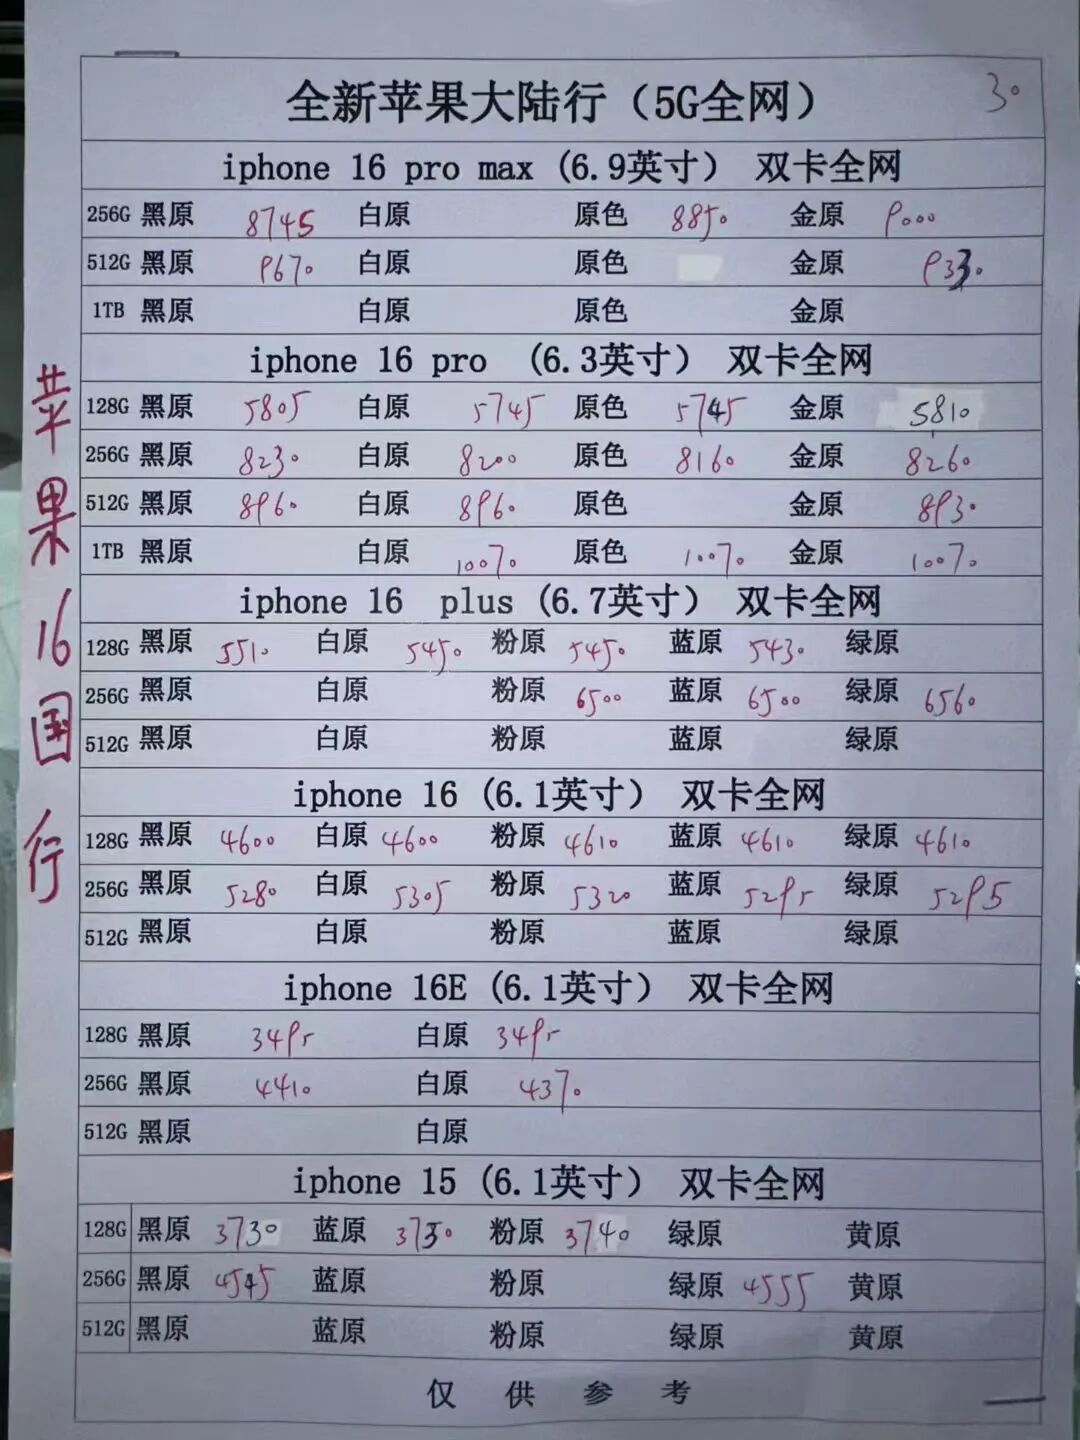 全新苹果大陆行（5G全网） 30
iphone 16 pro max (6.9英寸） 双卡全网
256G 黑原 8745 白原 原色 8850 金原 9000
512G 黑原 9670 白原 原色 金原 9330
1TB 黑原 白原 原色 金原
iphone 16 pro （6.3英寸） 双卡全网
128G 黑原 5805 白原 5745 原色 5745 金原 5810
256G 黑原 8230 白原 8200 原色 8160 金原 8260
512G 黑原 8960 白原 8960 原色 金原 8930
1TB 黑原 白原 10070 原色 10070 金原 10070
iphone 16 plus (6.7英寸） 双卡全网
128G 黑原 5510 白原 5450 粉原 5450 蓝原 5430 绿原
256G 黑原 白原 粉原 6500 蓝原 6500 绿原 6560
512G 黑原 白原 粉原 蓝原 绿原
iphone 16 (6.1英寸） 双卡全网
128G 黑原 4600 白原 4600 粉原 4610 蓝原 4610 绿原 4610
256G 黑原 5280 白原 5305 粉原 5320 蓝原 5295 绿原 5295
512G 黑原 白原 粉原 蓝原 绿原
iphone 16E (6.1英寸） 双卡全网
128G 黑原 3495 白原 3495
256G 黑原 4410 白原 4370
512G 黑原 白原
iphone 15 (6.1英寸） 双卡全网
128G 黑原 3730 蓝原 3750 粉原 3740 绿原 黄原
256G 黑原 4545 蓝原 粉原 绿原 4555 黄原
512G 黑原 蓝原 粉原 绿原 黄原
仅供参考
苹果16国行